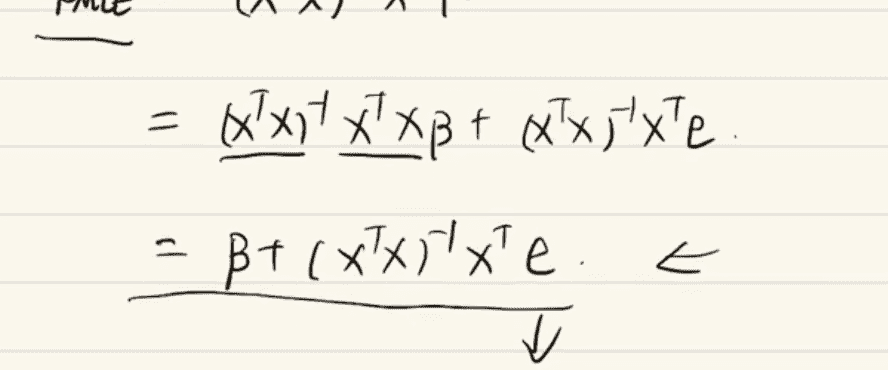 = (XᵀX)⁻¹ XᵀXβ + (XᵀX)⁻¹Xᵀe.
= β + (XᵀX)⁻¹Xᵀe. ←
↓